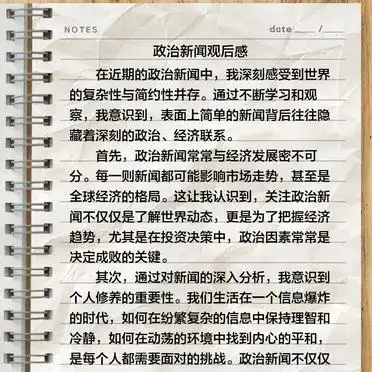 NOTES
date ____ /____
政治新闻观后感
在近期的政治新闻中，我深刻感受到世界
的复杂性与简约性并存。通过不断学习和观
察，我意识到，表面上简单的新闻背后往往隐
藏着深刻的政治、经济联系。
首先，政治新闻常常与经济发展密不可
分。每一则新闻都可能影响市场走势，甚至是
全球经济的格局。这让我认识到，关注政治新
闻不仅仅是了解世界动态，更是为了把握经济
趋势，尤其是在投资决策中，政治因素常常是
决定成败的关键。
其次，通过对新闻的深入分析，我意识到
个人修养的重要性。我们生活在一个信息爆炸
的时代，如何在纷繁复杂的信息中保持理智和
冷静，如何在动荡的环境中找到内心的平和，
是每个人都需要面对的挑战。政治新闻不仅仅